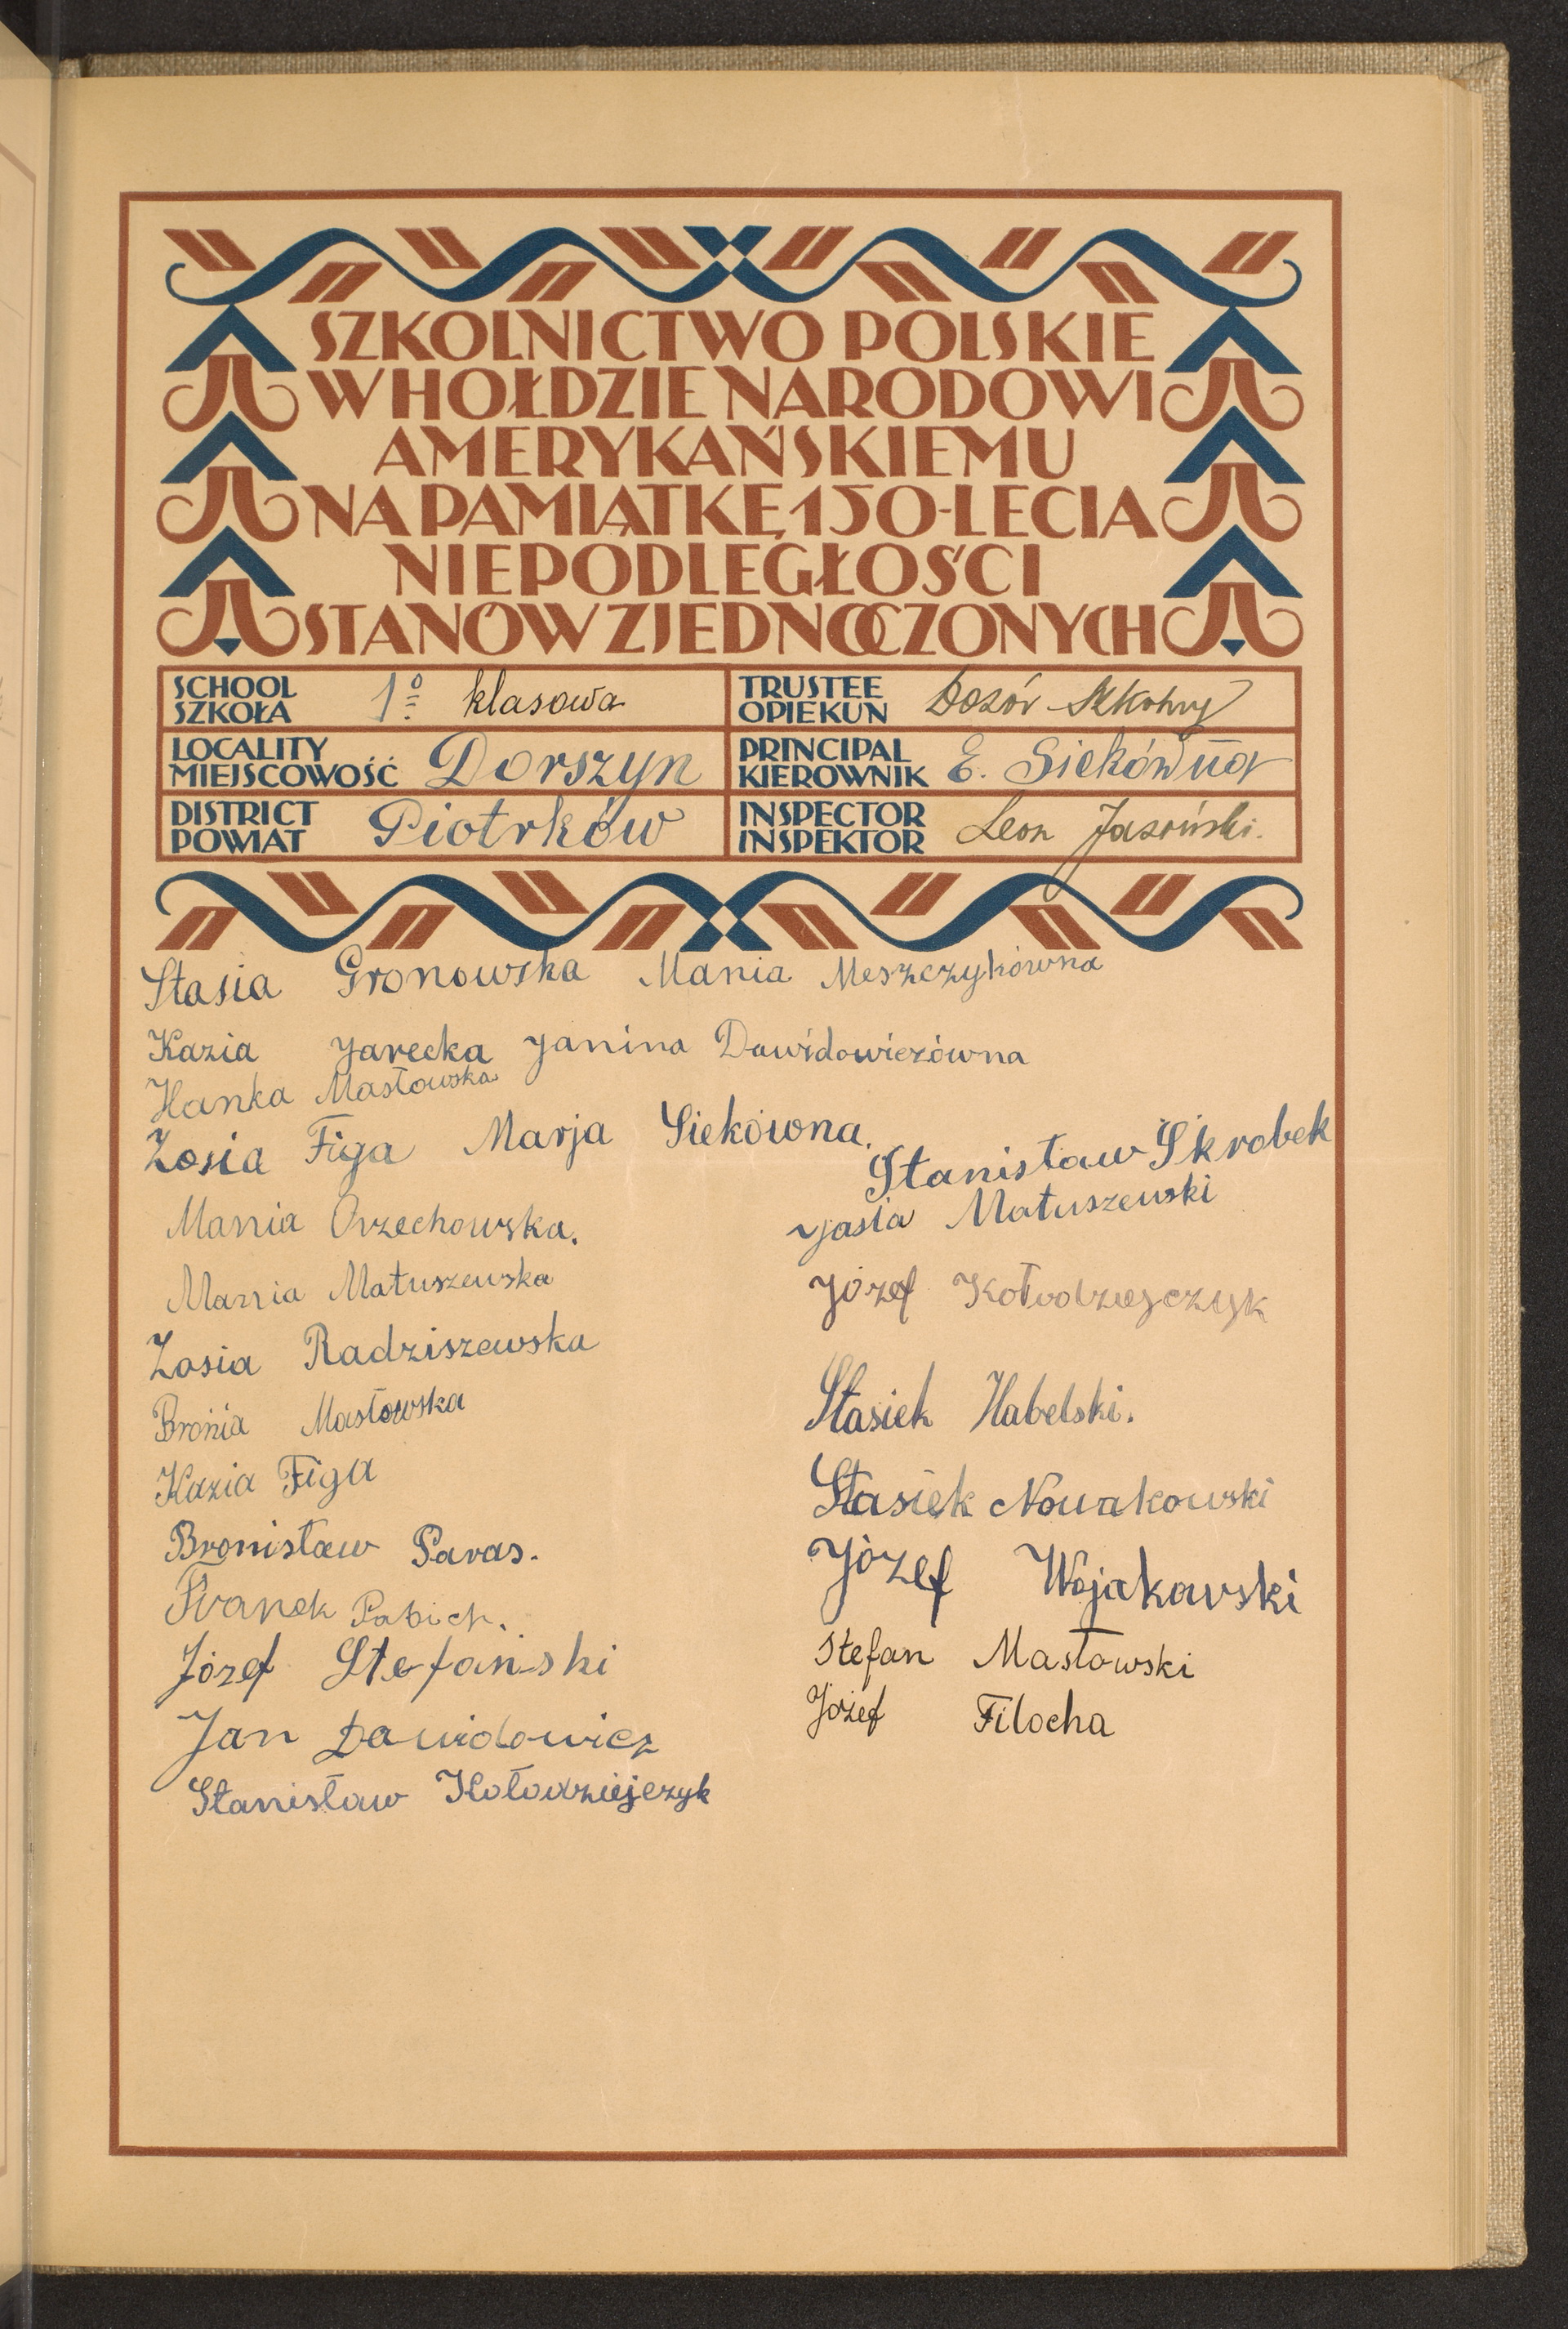 SZKOLNICTWO POLSKIE
W HOŁDZIE NARODOWI
AMERYKAŃSKIEMU
NA PAMIĄTKĘ 150-LECIA
NIEPODLEGŁOŚCI
STANÓW ZJEDNOCZONYCH
SCHOOL
SZKOŁA
1º klasowa
TRUSTEE
OPIEKUN
Dozór Szkolny
LOCALITY
MIEJSCOWOŚĆ
Dorszyn
PRINCIPAL
KIEROWNIK
E. Siekówna
DISTRICT
POWIAT
Piotrków
INSPECTOR
INSPEKTOR
Leon
Stasia Gronowska Mania Meszczykówna
Kazia Jarecka Janina Dawidowiczówna
Hanka Masłowska
Zosia Figa Marja Siekówna.
Stanisław Skrobek
Mania Orzechowska.
Jasia Matuszewski
Mania Matuszewska
Józef Kołodziejczyk
Zosia Radziszewska
Bronia Masłowska
Stasiek Habelski.
Kazia Figa
Stasiek Nowakowski
Bronisław Paras.
Józef Wojakowski
Franek Pabich.
Józef Stefański
Stefan Masłowski
Jan Dawidowicz
Józef Filocha
Stanisław Kołodziejczyk